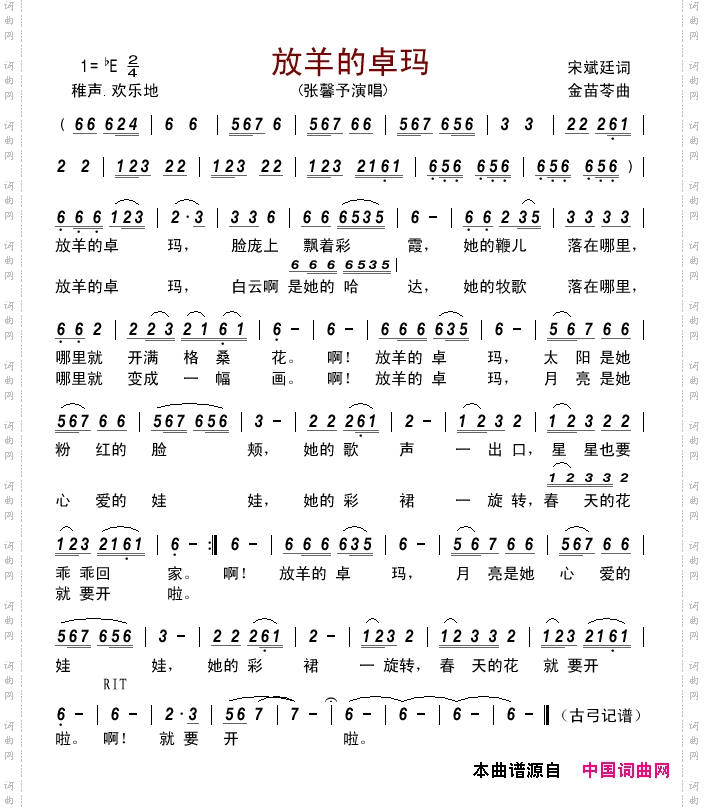 放羊的卓玛
1=♭E 2/4
宋斌廷词
稚声.欢乐地
(张馨予演唱)
金苗苓曲
( 66 624 | 6 6 | 567 6 | 567 66 | 567 656 | 3 3 | 22 261 |
2 2 | 123 22 | 123 22 | 123 2161 | 656 656 | 656 656 ) |
6 6 6 123 | 2·3 | 3 3 6 | 66 6535 | 6 - | 66 2 35 | 3 3 3 3 |
放羊的卓 玛, 脸庞上 飘着彩 霞, 她的鞭儿 落在哪里,
6 6 6 6535 |
放羊的卓 玛, 白云啊 是她的 哈 达, 她的牧歌 落在哪里,
6 6 2 | 2 2 3 2 1 6 1 | 6 - | 6 - | 6 6 6 635 | 6 - | 5 6 7 6 6 |
哪里就 开满 格 桑 花。 啊! 放羊的 卓 玛, 太 阳 是她
哪里就 变成 一 幅 画。 啊! 放羊的 卓 玛, 月 亮 是她
567 6 6 | 567 656 | 3 - | 2 2 261 | 2 - | 1 2 3 2 | 1 2 3 2 2 |
粉 红的 脸 颊, 她的 歌 声 一 出 口, 星 星也要
1 2 3 3 2
心 爱的 娃 娃, 她的 彩 裙 一 旋 转,春 天的花
123 2161 | 6 - :‖ 6 - | 6 6 6 635 | 6 - | 5 6 7 6 6 | 567 6 6 |
乖 乖回 家。 啊! 放羊的 卓 玛, 月 亮是她 心 爱的
就 要开 啦。
567 656 | 3 - | 2 2 261 | 2 - | 123 2 | 12 3 3 2 | 123 2161 |
娃 娃, 她的 彩 裙 一 旋转, 春 天的花 就 要开
RIT
6 - | 6 - | 2·3 | 56 7 7 | 7 - | 6 - | 6 - | 6 - | 6 - ‖ (古弓记谱)
啦。 啊! 就 要 开 啦。
本曲谱源自 中国词曲网
词曲网